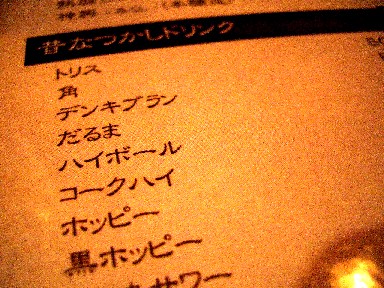 昔なつかしドリンク
トリス
角
デンキブラン
だるま
ハイボール
コークハイ
ホッピー
黒ホッピー
サワー